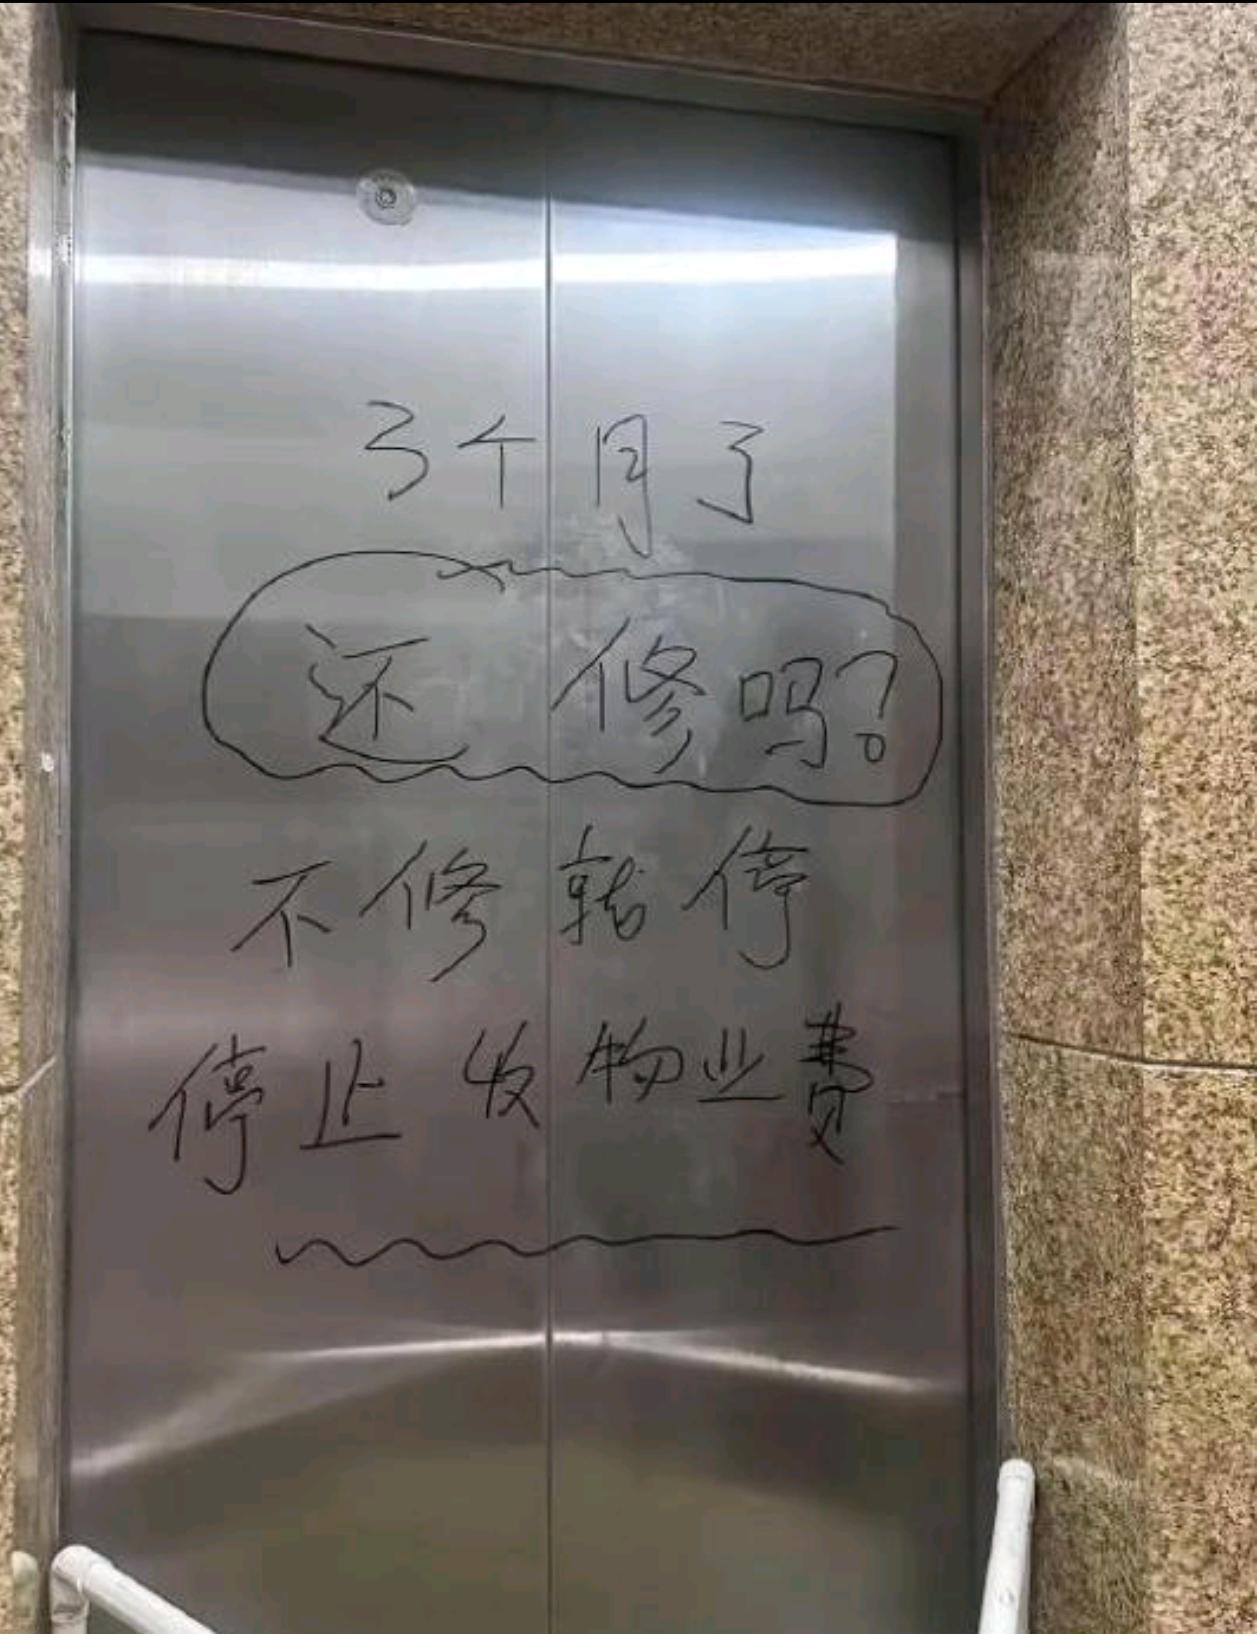 3个月了
还修吗?
不修就停
停止收物业费